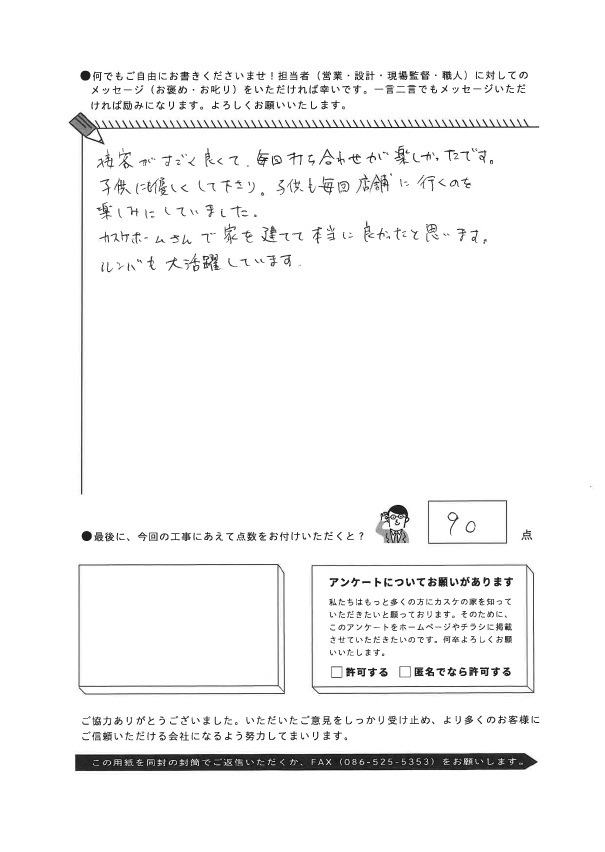 ●何でもご自由にお書きくださいませ!担当者(営業・設計・現場監督・職人)に対しての
メッセージ(お褒め・お叱り)をいただければ幸いです。一言二言でもメッセージいただ
ければ励みになります。よろしくお願いいたします。
接客がすごく良くて、毎回打ち合わせが楽しかったです。
子供にも優しくして下さり。子供も毎回店舗に行くのを
楽しみにしていました。
カスケホームさんで家を建てて本当に良かったと思います。
ルンバも大活躍しています.
●最後に、今回の工事にあえて点数をお付けいただくと?
90
点
アンケートについてお願いがあります
私たちはもっと多くの方にカスケの家を知って
いただきたいと願っております。そのために、
このアンケートをホームページやチラシに掲載
させていただきたいのです。何卒よろしくお願
いいたします。
□許可する □匿名でなら許可する
ご協力ありがとうございました。いただいたご意見をしっかり受け止め、より多くのお客様に
ご信頼いただける会社になるよう努力してまいります。
この用紙を同封の封筒でご返信いただくか、FAX(086-525-5353)をお願いします。